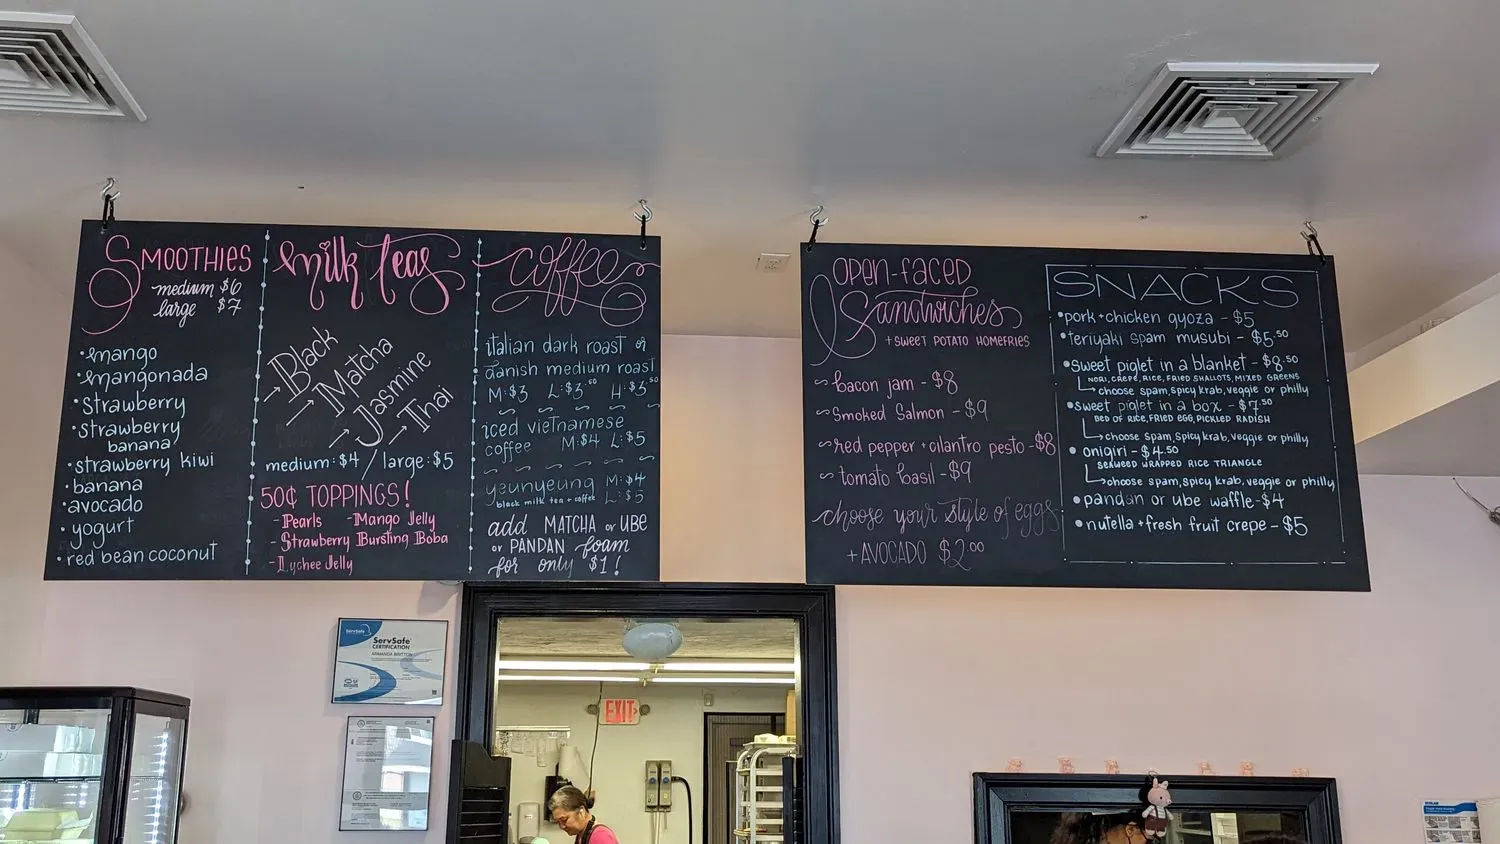 Smoothies
medium $6
large $7
•mango
•mangonada
•strawberry
•strawberry
banana
•strawberry kiwi
•banana
•avocado
•yogurt
•red bean coconut
milk teas
→Black
→Matcha
→Jasmine
→Thai
medium:$4/large:$5
50¢ TOPPINGS!
-Pearls -Mango Jelly
-Strawberry Bursting Boba
-Lychee Jelly
coffee
italian dark roast or
danish medium roast
M:$3 L:$3.50 H:$3.50
iced vietnamese
coffee M:$4 L:$5
yeunyeung M:$4
black milk tea + coffee L:$5
add MATCHA or UBE
or PANDAN foam
for only $1!
OPEN-FACED
Sandwiches
+SWEET POTATO HOMEFRIES
~bacon jam-$8
~Smoked Salmon-$9
~red pepper+cilantro pesto-$8
~tomato basil-$9
choose your style of eggs
+AVOCADO $2.00
SNACKS
•pork+chicken gyoza-$5
•teriyaki spam musubi-$5.50
•Sweet piglet in a blanket-$8.50
NORI, CREPE, RICE, FRIED SHALLOTS, MIXED GREENS
→choose spam, spicy krab, veggie or philly
•sweet piglet in a box-$7.50
BED OF RICE, FRIED EGG, PICKLED RADISH
→choose spam, spicy krab, veggie or philly
•onigiri-$4.50
SEAWEED WRAPPED RICE TRIANGLE
→choose spam, spicy krab, veggie or philly
•pandan or ube waffle-$4
•nutella+fresh fruit crepe-$5
ServSafe
ServSafe
CERTIFICATION
EXIT